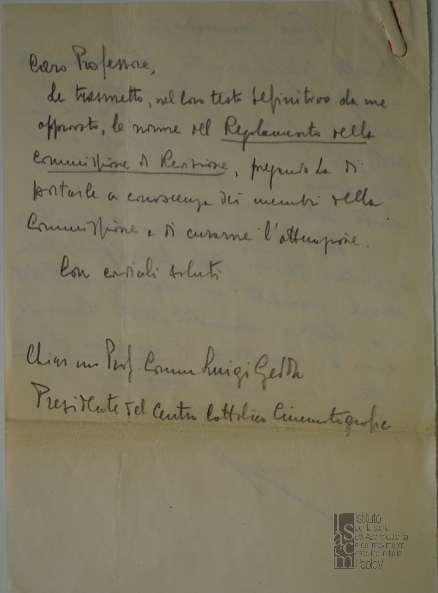 Caro Professore,
Le trasmetto, nel loro testo definitivo da me
approvato, le norme del Regolamento della
Commissione di Revisione, pregando La di
portarle a conoscenza dei membri della
Commissione e di curarne l'attuazione.
Con cordiali saluti
Chiar mo Prof. Comm Luigi Gedda
Presidente del Centro Cattolico Cinematografico
Istituto
per la storia
dell'Azione cattolica
e del movimento
cattolico in Italia
Paolo VI